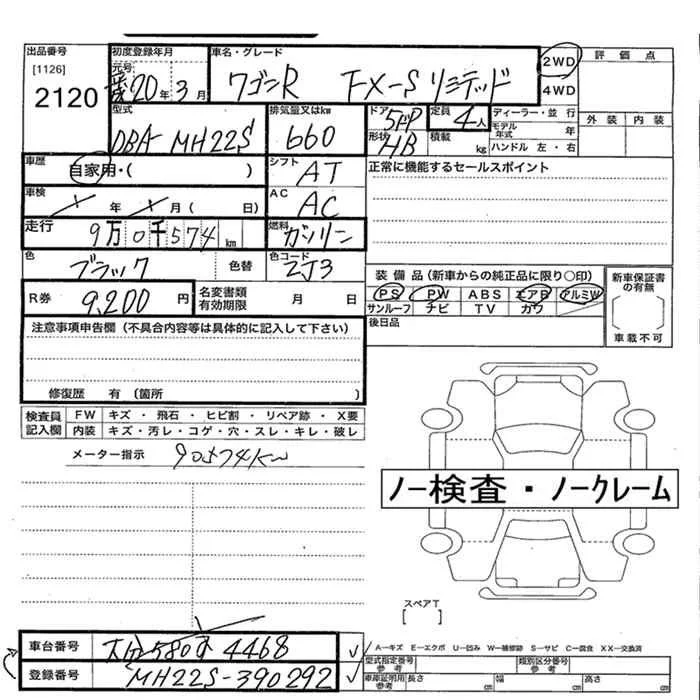 出品番号
[1126]
2120
初度登録年月
元号
20年 3月
車名・グレード
ワゴンR FX-Sリミテッド
2WD
4WD
評価点
外装 内装
型式
DBA MH22S
排気量又はkw
660
ドア
5ドア
形状
HB
定員
4人
積載
kg
ディーラー・並行
モデル年式 年
ハンドル 左・右
車歴
自家用・( )
シフト
AT
正常に機能するセールスポイント
車検
年 月( 日)
AC
AC
走行
9万0千574km
燃料
ガソリン
色
ブラック
色替
色コード
ZJ3
R券
9,200円
名変書類有効期限
月 日
装備品(新車からの純正品に限り○印)
PS PW ABS エアB アルミW
サンルーフ ナビ TV カワ
後日品
新車保証書の有無
車載不可
注意事項申告欄(不具合内容等は具体的に記入して下さい)
修復歴 有(箇所 )
検査員記入欄
FW キズ・飛石・ヒビ割・リペア跡・X要
内装 キズ・汚レ・コゲ・穴・スレ・キレ・破レ
メーター指示 90574Km
ノー検査・ノークレーム
スペアT
[ ]
車台番号
大分580す4468
登録番号
MH22S-390292
A-キズ E-エクボ U-凹み W-補修跡 S-サビ C-腐食 XX-交換済
型式指定番号
参考
類別区分番号
参考
車庫証明用
参考
長さ cm
幅 cm
高さ cm